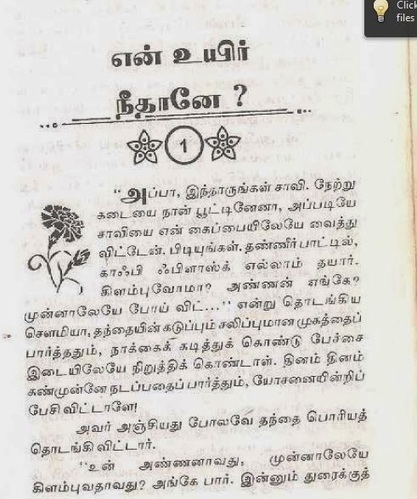 Click
files
என் உயிர்
நீதானே ?
1
"அப்பா, இந்தாருங்கள் சாவி. நேற்று
கடையை நான் பூட்டினேனா, அப்படியே
சாவியை என் கைப்பையிலேயே வைத்து
விட்டேன். பிடியுங்கள். தண்ணீர் பாட்டில்,
காஃபி ஃபிளாஸ்க் எல்லாம் தயார்.
கிளம்புவோமா? அண்ணன் எங்கே?
முன்னாலேயே போய் விட்...." என்று தொடங்கிய
சௌமியா, தந்தையின் கடுப்பும் சலிப்புமான முகத்தைப்
பார்த்ததும், நாக்கைக் கடித்துக் கொண்டு பேச்சை
இடையிலேயே நிறுத்திக் கொண்டாள். தினம் தினம்
கண்முன்னே நடப்பதைப் பார்த்தும், யோசனையின்றிப்
பேசி விட்டாளே!
அவர் அஞ்சியது போலவே தந்தை பொரியத்
தொடங்கி விட்டார்.
"உன் அண்ணனாவது, முன்னாலேயே
கிளம்புவதாவது? அங்கே பார். இன்னும் துரைக்குத்